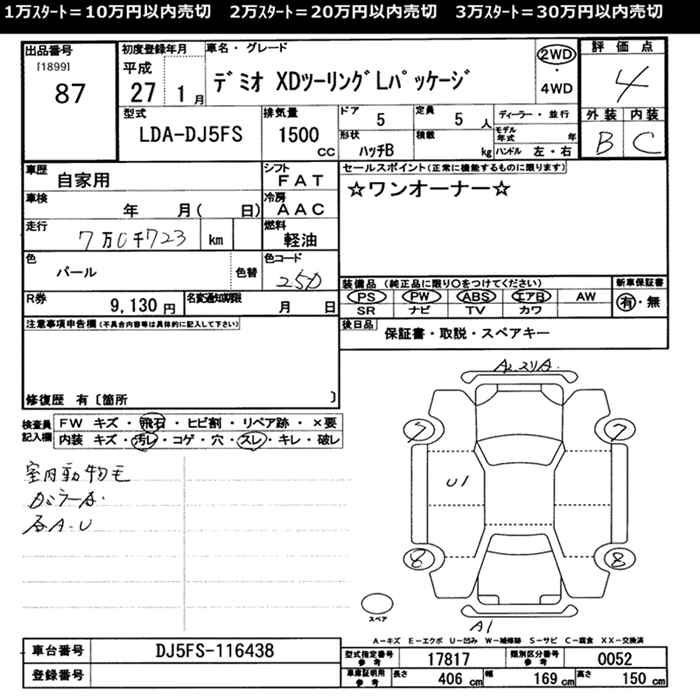 1万スタート＝10万円以内売切　2万スタート＝20万円以内売切　3万スタート＝30万円以内売切
出品番号
[1899]
87
初度登録年月
平成
27 1月
車名・グレード
デミオ XDツーリング Lパッケージ
2WD
・
4WD
評価点
4
外装 内装
B C
型式
LDA-DJ5FS
排気量
1500
cc
ドア 5
定員 5 人
ディーラー・並行
形状
ハッチB
積載
kg
モデル年式 年
ハンドル 左・右
車歴
自家用
シフト
FAT
セールスポイント(正常に機能するものに限ります)
☆ワンオーナー☆
車検
年 月( 日)
冷房
AAC
走行
7万0千723 km
燃料
軽油
色
パール
色替
色コード
25D
R券
9,130 円
名変通知期限
月 日
装備品 (純正品に限り○をつけてください)
PS PW ABS エアB AW
SR ナビ TV カワ
新車保証書
有・無
後日品
保証書・取説・スペアキー
注意事項申告欄(不具合内容等は具体的に記入して下さい)
修復歴 有〔箇所 〕
検査員記入欄
FW キズ・飛石・ヒビ割・リペア跡・×要
内装 キズ・汚レ・コゲ・穴・スレ・キレ・破レ
室内動物毛
各A.U
7 7
U1
8 8
スペア
A1
A-キズ E-エクボ U-凹み W-補修跡 S-サビ C-腐食 XX-交換済
車台番号
DJ5FS-116438
登録番号
型式指定番号
参考
17817
類別区分番号
参考
0052
車庫証明用
参考
長さ 406 cm 幅 169 cm 高さ 150 cm